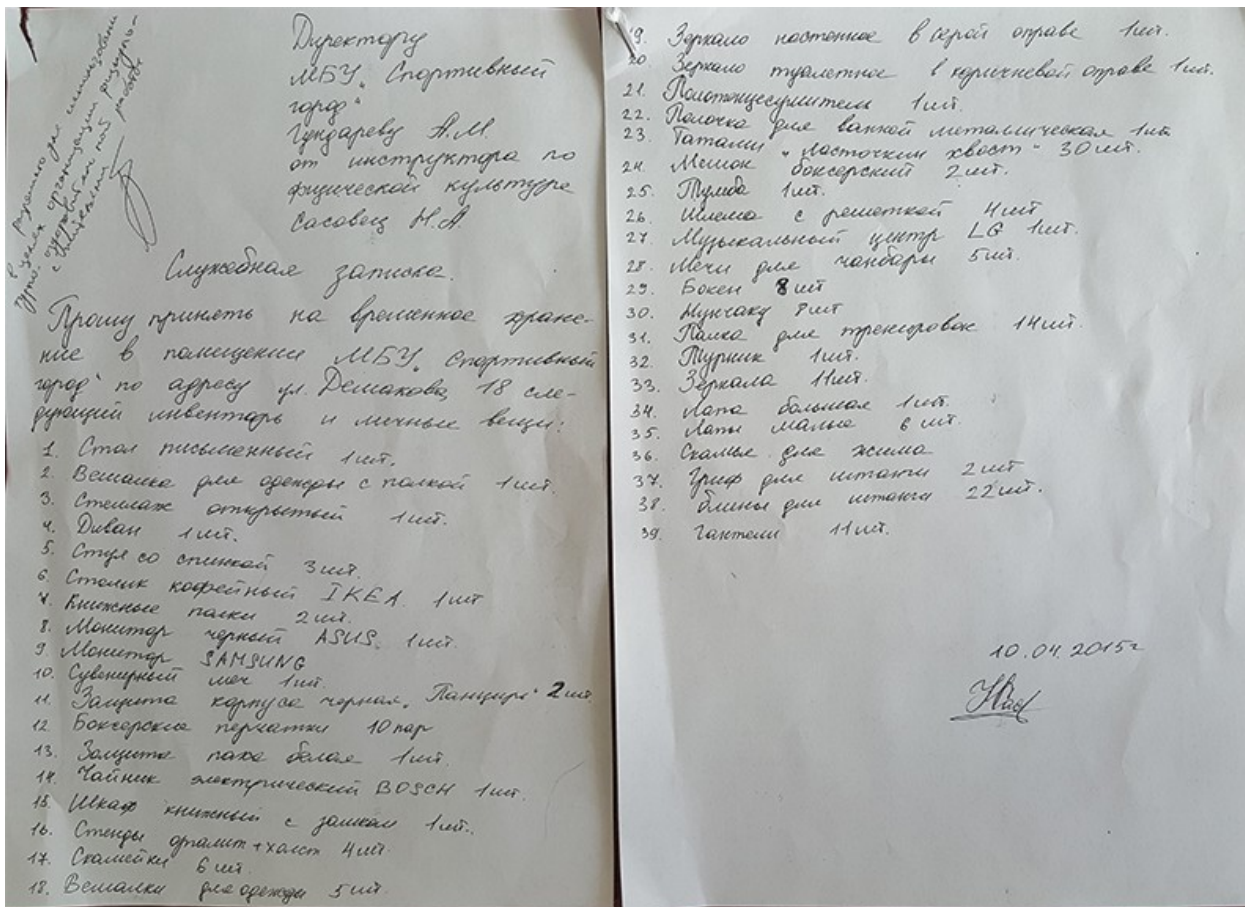 Директору
МБУ „Спортивный
город"
Гундареву А.М.
от инструктора по
физической культуре
Сасовец Н.А.
Служебная записка.
Прошу принять на временное хране-
ние в помещении МБУ „Спортивный
город" по адресу ул. Демакова, 18 сле-
дующий инвентарь и личные вещи:
1. Стол письменный 1шт.
2. Вешалка для одежды с полкой 1шт.
3. Стеллаж открытый 1шт.
4. Диван 1шт.
5. Стул со спинкой 3шт.
6. Столик кофейный IKEA 1шт
7. Книжные полки 2шт.
8. Монитор черный ASUS 1шт.
9. Монитор SAMSUNG
10. Сувенирный меч 1шт.
11. Защита корпуса черная „Панцирь" 2шт.
12. Боксерские перчатки 10пар
13. Защита паха белая 1шт.
14. Чайник электрический BOSCH 1шт.
15. Шкаф книжный с замком 1шт.
16. Стенды оргалит+холст 4шт.
17. Скамейки 6шт.
18. Вешалки для одежды 5шт.
19. Зеркало настенное в серой оправе 1шт.
20. Зеркало туалетное в коричневой оправе 1шт.
21. Полотенцесушитель 1шт.
22. Полочка для ванной металлическая 1шт
23. Татами „ласточкин хвост" 30шт.
24. Мешок боксерский 2шт.
25. Тумба 1шт.
26. Шлема с решеткой 4шт
27. Музыкальный центр LG 1шт.
28. Мечи для чанбары 5шт.
29. Бокен 8шт
30. Нунчаку 8шт
31. Палка для тренировок 14шт.
32. Турник 1шт.
33. Зеркала 11шт.
34. Лапа большая 1шт.
35. Лапы малые 6шт.
36. Скамья для жима
37. Гриф для штанги 2шт
38. Блины для штанги 22шт.
39. Гантели 11шт.
10.04.2015г